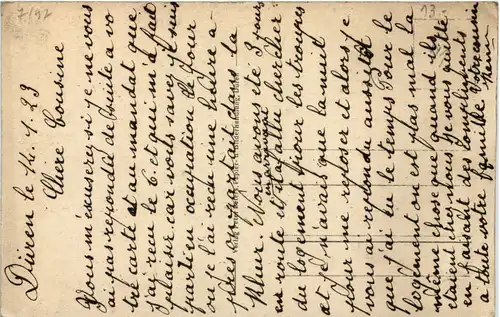 7/92
13-
Düren le 14.1.23
Chère Cousine
Vous m'excuserez si je ne vous
ai pas repondu de suite a vo
tre carte et au mandat que
j'ai reçu le 6. et qui m'a fait
plaisir car vous savez je suis
parti en occupation le jour
ou je l'ai reçu une heure a-
près et la
Pleur. Nous avons été 3 jours
en route et fallu chercher
du logement pour les troupes
et je n'avais que la nuit
pour me reposer et alors je
vous ai repondu aussitôt
que j'ai eu le temps Pour le
logement on est pas mal la
même chose que quand ils
étaient chez nous je vous quitte
en faisant des compliments
a toute votre famille Votre cousin